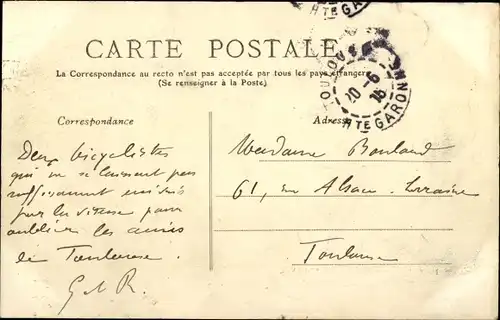 HTE GARONNE
CARTE POSTALE
La Correspondance au recto n'est pas acceptée par tous les pays étrangers
(Se renseigner à la Poste).
TOULOUSE
20-6
HTE GARONNE
Correspondance
Adresse
Deux bicyclistes
qui ne se laissent pas
suffisamment
par la vitesse pour
oublier les amis
de Toulouse.
G et R.
Madame Bouland
61, rue Alsace-Lorraine
Toulouse